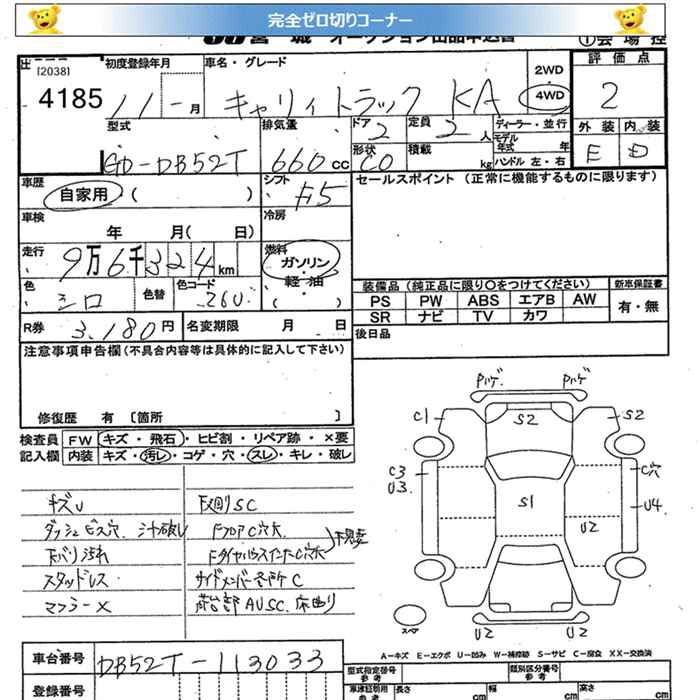 完全ゼロ切りコーナー
JU宮城 オークション出品申込書 ①会場控
出 [2038] 初度登録年月 車名・グレード 2WD 評価点
4185 11 - 月 キャリィトラック KA 4WD 2
型式 排気量 ドア 定員 ディーラー・並行 外装 内装
GD-DB52T 660cc 2 2人 モデル年式 年 E D
形状 積載 kg ハンドル 左・右
CO
車歴 シフト セールスポイント (正常に機能するものに限ります)
自家用・( ) F5
車検 冷房
年 月( 日)
走行 燃料
9万6千324km ガソリン・軽油・( )
色 色替 色コード 装備品 (純正品に限り○をつけてください) 新車保証書
シロ 26U PS PW ABS エアB AW 有・無
SR ナビ TV カワ
R券 3,180円 名変期限 月 日 後日品
注意事項申告欄(不具合内容等は具体的に記入して下さい)
修復歴 有 〔箇所 〕
検査員 FW キズ・飛石・ヒビ割・リペア跡・×要
記入欄 内装 キズ・汚レ・コゲ・穴・スレ・キレ・破レ
キズU
ダッシュビス穴 シート破レ
天バリ汚れ
スタッドレス
マフラー×
下廻りSC
FフロアC穴大
FタイヤハウスインナーC穴大
下見要
サイドメンバー各所C
荷台部AUSC.床曲り
Pハゲ Pハゲ
C1 S2 S2
C3 C穴
U3 S1 U4
U2
スペア U2 U2
A－キズ E－エクボ U－凹み W－補修跡 S－サビ C－腐食 XX－交換済
車台番号 DB52T-113033
登録番号
型式指定番号 参考 類別区分番号 参考
車庫証明用 参考 長さ cm 幅 cm 高さ cm